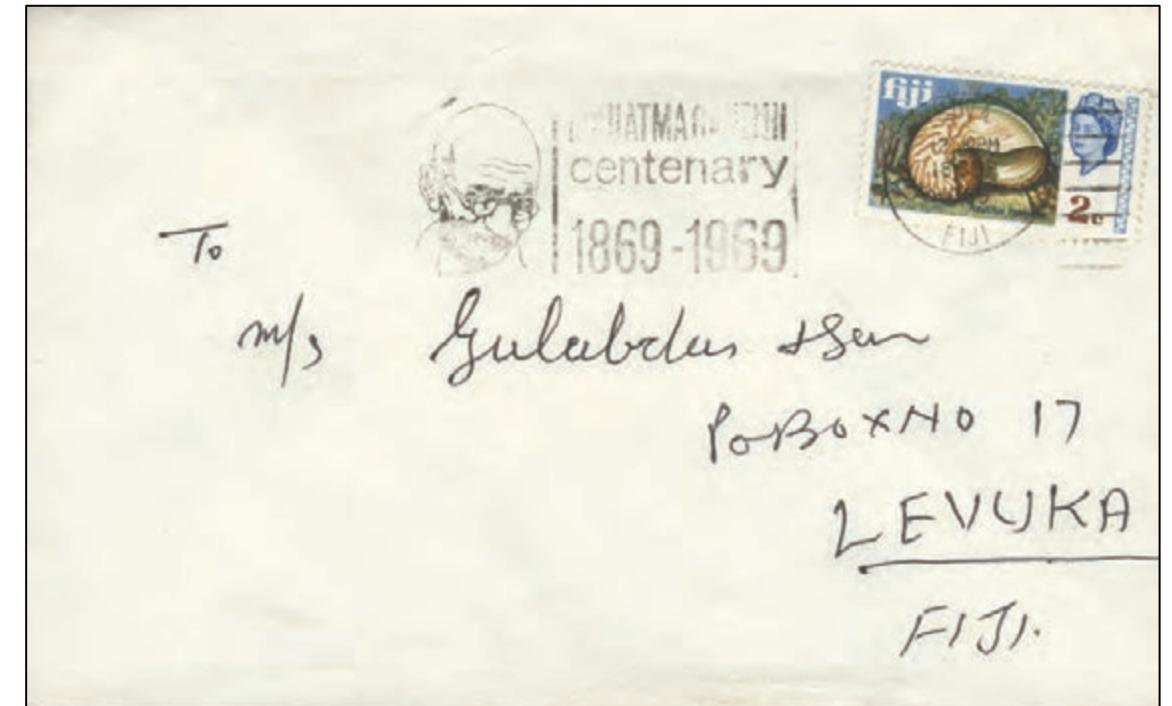 fiji
MAHATMA GANDHI
centenary
1869-1969
2c
FIJI
To
M/s Gulabdas & Son
PO BOX NO 17
LEVUKA
FIJI.